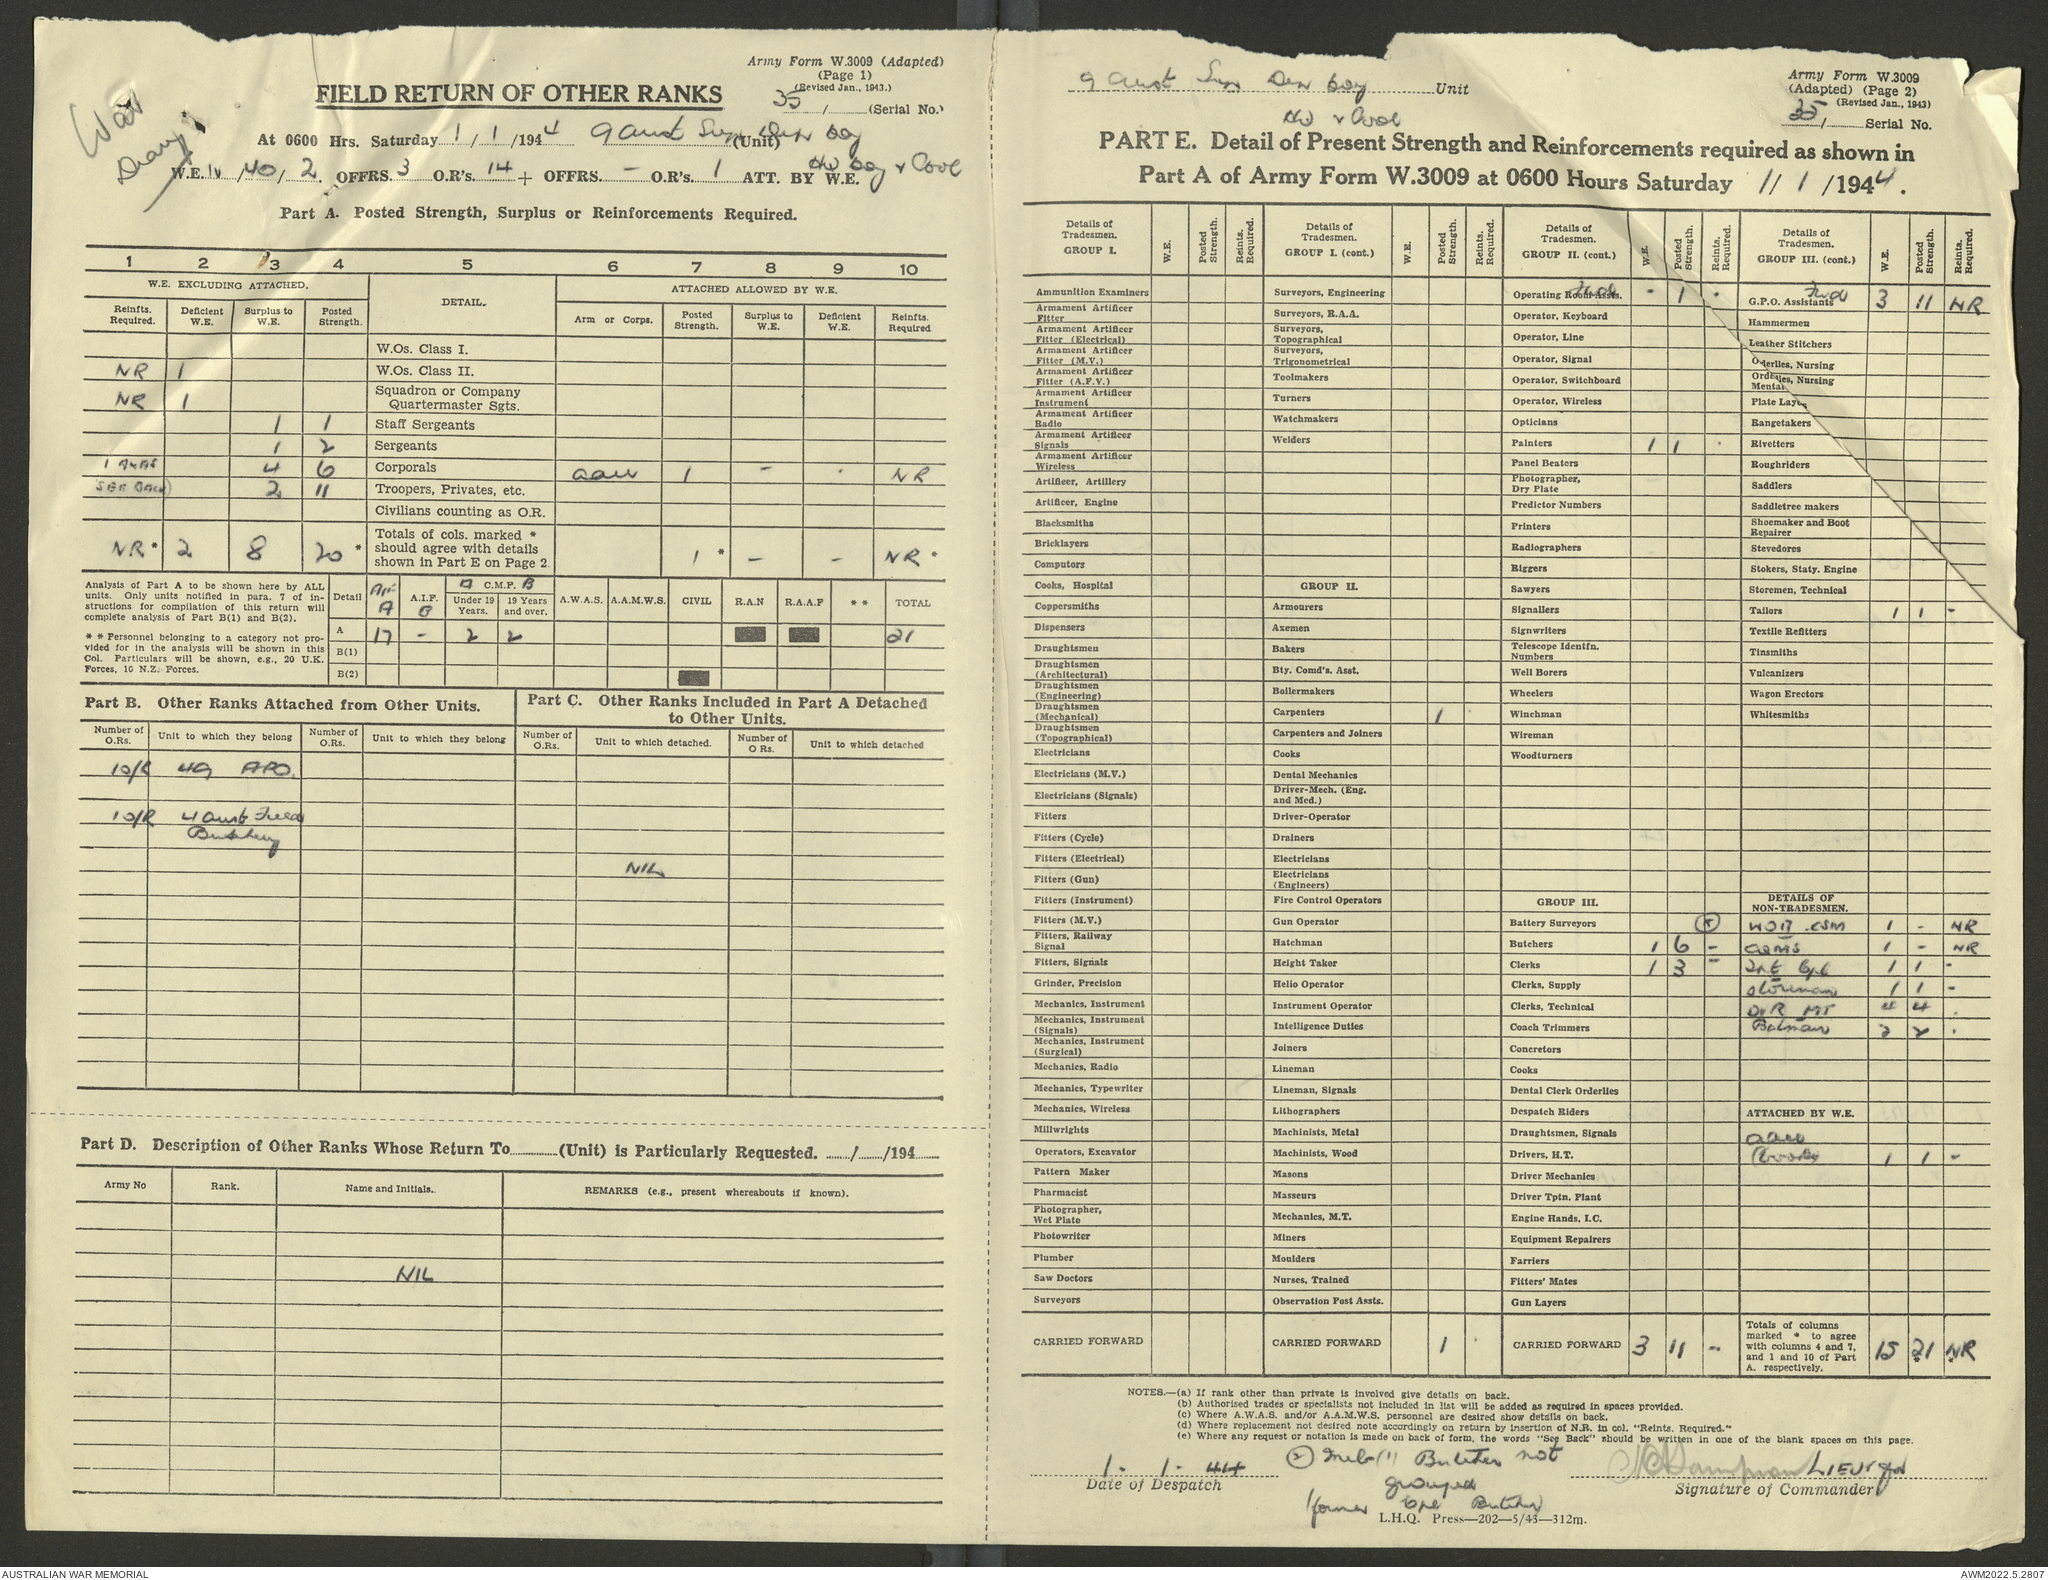 War
Diary
Army Form W.3009 (Adapted)
(Page 1)
(Revised Jan., 1943.)
35/ (Serial No.)
FIELD RETURN OF OTHER RANKS
At 0600 Hrs. Saturday 1/1/1944 9 Aust Sup Dep Coy (Unit)
HQ Coy &
W.E. IV/40/2. OFFRS. 3 O.R's. 14 + OFFRS. – O.R's. 1 ATT. BY W.E.
Part A. Posted Strength, Surplus or Reinforcements Required.
1 2 3 4 5 6 7 8 9 10
W.E. EXCLUDING ATTACHED. DETAIL. ATTACHED ALLOWED BY W.E.
Reinfts. Required. Deficient W.E. Surplus to W.E. Posted Strength. Arm or Corps. Posted Strength. Surplus to W.E. Deficient W.E. Reinfts. Required
W.Os. Class I.
NR 1 W.Os. Class II.
NR 1 Squadron or Company Quartermaster Sgts.
1 1 Staff Sergeants
1 2 Sergeants
4 6 Corporals AACC 1 – - NR
SEE BACK 2 11 Troopers, Privates, etc.
Civilians counting as O.R.
NR* 2 8 20* Totals of cols. marked * should agree with details shown in Part E on Page 2. 1* – – NR*
Analysis of Part A to be shown here by ALL units. Only units notified in para. 7 of instructions for compilation of this return will complete analysis of Part B(1) and B(2).
** Personnel belonging to a category not provided for in the analysis will be shown in this Col. Particulars will be shown, e.g., 20 U.K. Forces, 10 N.Z. Forces.
Detail AIF A A.I.F. B A C.M.F. B Under 19 Years. 19 Years and over. A.W.A.S. A.A.M.W.S. CIVIL R.A.N R.A.A.F ** TOTAL
A 17 – 2 2 21
B(1)
B(2)
Part B. Other Ranks Attached from Other Units.
Part C. Other Ranks Included in Part A Detached to Other Units.
Number of O.Rs. Unit to which they belong Number of O.Rs. Unit to which they belong Number of O.Rs. Unit to which detached. Number of O Rs. Unit to which detached
1 O/R 49 APO.
1 O/R 4 Aust Field
Butchery
NIL
Part D. Description of Other Ranks Whose Return To............(Unit) is Particularly Requested. ....../....../194......
Army No Rank. Name and Initials. REMARKS (e.g., present whereabouts if known).
NIL
9 Aust Sup Dep Coy Unit
HQ &
Army Form W.3009
(Adapted) (Page 2)
(Revised Jan., 1943)
35/ Serial No.
PART E. Detail of Present Strength and Reinforcements required as shown in
Part A of Army Form W.3009 at 0600 Hours Saturday 1/1/1944.
Details of Tradesmen. GROUP I. W.E. Posted Strength. Reints. Required.
Ammunition Examiners
Armament Artificer Fitter
Armament Artificer Fitter (Electrical)
Armament Artificer Fitter (M.V.)
Armament Artificer Fitter (A.F.V.)
Armament Artificer Instrument
Armament Artificer Radio
Armament Artificer Signals
Armament Artificer Wireless
Artificer, Artillery
Artificer, Engine
Blacksmiths
Bricklayers
Computors
Cooks, Hospital
Coppersmiths
Dispensers
Draughtsmen
Draughtsmen (Architectural)
Draughtsmen (Engineering)
Draughtsmen (Mechanical)
Draughtsmen (Topographical)
Electricians
Electricians (M.V.)
Electricians (Signals)
Fitters
Fitters (Cycle)
Fitters (Electrical)
Fitters (Gun)
Fitters (Instrument)
Fitters (M.V.)
Fitters, Railway Signal
Fitters, Signals
Grinder, Precision
Mechanics, Instrument
Mechanics, Instrument (Signals)
Mechanics, Instrument (Surgical)
Mechanics, Radio
Mechanics, Typewriter
Mechanics, Wireless
Millwrights
Operators, Excavator
Pattern Maker
Pharmacist
Photographer, Wet Plate
Photowriter
Plumber
Saw Doctors
Surveyors
CARRIED FORWARD
Details of Tradesmen. GROUP I. (cont.) W.E. Posted Strength. Reints. Required.
Surveyors, Engineering
Surveyors, R.A.A.
Surveyors, Topographical
Surveyors, Trigonometrical
Toolmakers
Turners
Watchmakers
Welders
GROUP II.
Armourers
Axemen
Bakers
Bty. Comd's. Asst.
Boilermakers
Carpenters 1
Carpenters and Joiners
Cooks
Dental Mechanics
Driver-Mech. (Eng. and Med.)
Driver-Operator
Drainers
Electricians
Electricians (Engineers)
Fire Control Operators
Gun Operator
Hatchman
Height Taker
Helio Operator
Instrument Operator
Intelligence Duties
Joiners
Lineman
Lineman, Signals
Lithographers
Machinists, Metal
Machinists, Wood
Masons
Masseurs
Mechanics, M.T.
Miners
Moulders
Nurses, Trained
Observation Post Assts.
CARRIED FORWARD 1
Details of Tradesmen. GROUP II. (cont.) W.E. Posted Strength. Reints. Required.
Fwd - 1 -
Operating Room Assts.
Operator, Keyboard
Operator, Line
Operator, Signal
Operator, Switchboard
Operator, Wireless
Opticians
Painters 1 1 .
Panel Beaters
Photographer, Dry Plate
Predictor Numbers
Printers
Radiographers
Riggers
Sawyers
Signallers
Signwriters
Telescope Identfn. Numbers
Well Borers
Wheelers
Winchman
Wireman
Woodturners
GROUP III.
Battery Surveyors
Butchers 1 6 –
Clerks 1 3 –
Clerks, Supply
Clerks, Technical
Coach Trimmers
Concretors
Cooks
Dental Clerk Orderlies
Despatch Riders
Draughtsmen, Signals
Drivers, H.T.
Driver Mechanics
Driver Tptn. Plant
Engine Hands, I.C.
Equipment Repairers
Farriers
Fitters' Mates
Gun Layers
CARRIED FORWARD 3 11 –
Details of Tradesmen. GROUP III. (cont.) W.E. Posted Strength. Reints. Required.
Fwd 3 11 NR
G.P.O. Assistants
Hammermen
Leather Stitchers
Orderlies, Nursing
Orderlies, Nursing Mental
Plate Laye
Rangetakers
Rivetters
Roughriders
Saddlers
Saddletree makers
Shoemaker and Boot Repairer
Stevedores
Stokers, Staty. Engine
Storemen, Technical
Tailors 1 1 -
Textile Refitters
Tinsmiths
Vulcanizers
Wagon Erectors
Whitesmiths
DETAILS OF NON-TRADESMEN.
WOII CSM 1 - NR
CQMS 1 - NR
Cpl 1 1 -
Storeman 1 1 -
DVR MT 4 4 .
Batman 2 2 .
ATTACHED BY W.E.
AACC
(Cooks) 1 1 -
Totals of columns marked * to agree with columns 4 and 7, and 1 and 10 of Part A. respectively. 15 21* NR*
NOTES.—(a) If rank other than private is involved give details on back.
(b) Authorised trades or specialists not included in list will be added as required in spaces provided.
(c) Where A.W.A.S. and/or A.A.M.W.S. personnel are desired show details on back.
(d) Where replacement not desired note accordingly on return by insertion of N.R. in col. "Reints. Required."
(e) Where any request or notation is made on back of form, the words "See Back" should be written in one of the blank spaces on this page.
1. 1. 44
Date of Despatch
Butcher not
grouped
Cpl Butcher)
Lieut
Signature of Commander
L.H.Q. Press—202—5/43—312m.
AUSTRALIAN WAR MEMORIAL
AWM2022.5.2807